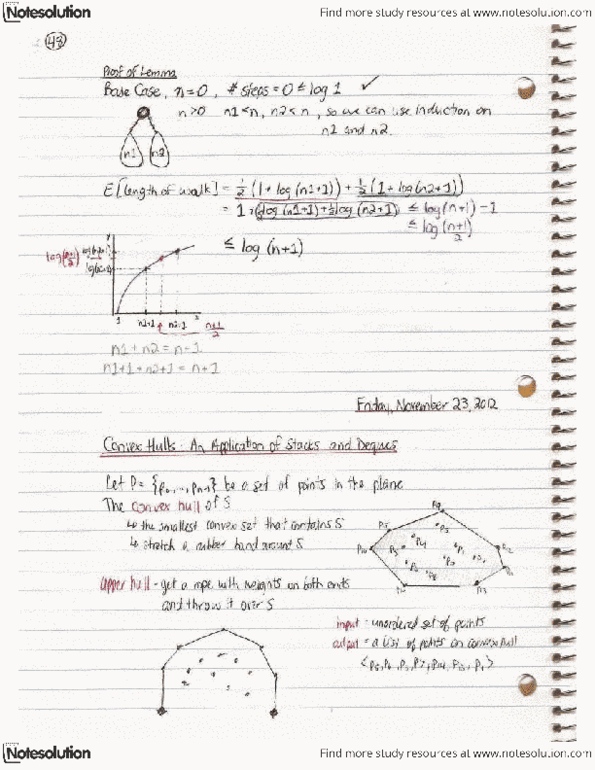 Notesolution
Find more study resources at www.notesolution.com
48
Proof of Lemma
Base Case, n=0, # steps = 0 ≤ log 1 ✓
n>0 n1<n, n2<n, so we can use induction on
n1 and n2.
n1 n2
E[length of walk] = 1/2 (1 + log(n1+1)) + 1/2 (1 + log(n2+1))
= 1 + 1/2 log(n1+1) + 1/2 log(n2+1) ≤ log(n+1) - 1
≤ log (n+1)/2
≤ log (n+1)
log(n+1)/2
1 n2+1 n1+1
(n+1)/2
n1 + n2 = n-1
n1+1 + n2+1 = n+1
Friday, November 23, 2012
Convex Hulls: An Application of Stacks and Deques
Let P = {p0, ..., pn-1} be a set of points in the plane
The convex hull of S
↳ the smallest convex set that contains S
↳ stretch a rubber band around S
upper hull - get a rope with weights on both ends
and throw it over S
input = unordered set of points
output = a list of points on convex hull
Notesolution
Find more study resources at www.notesolution.com